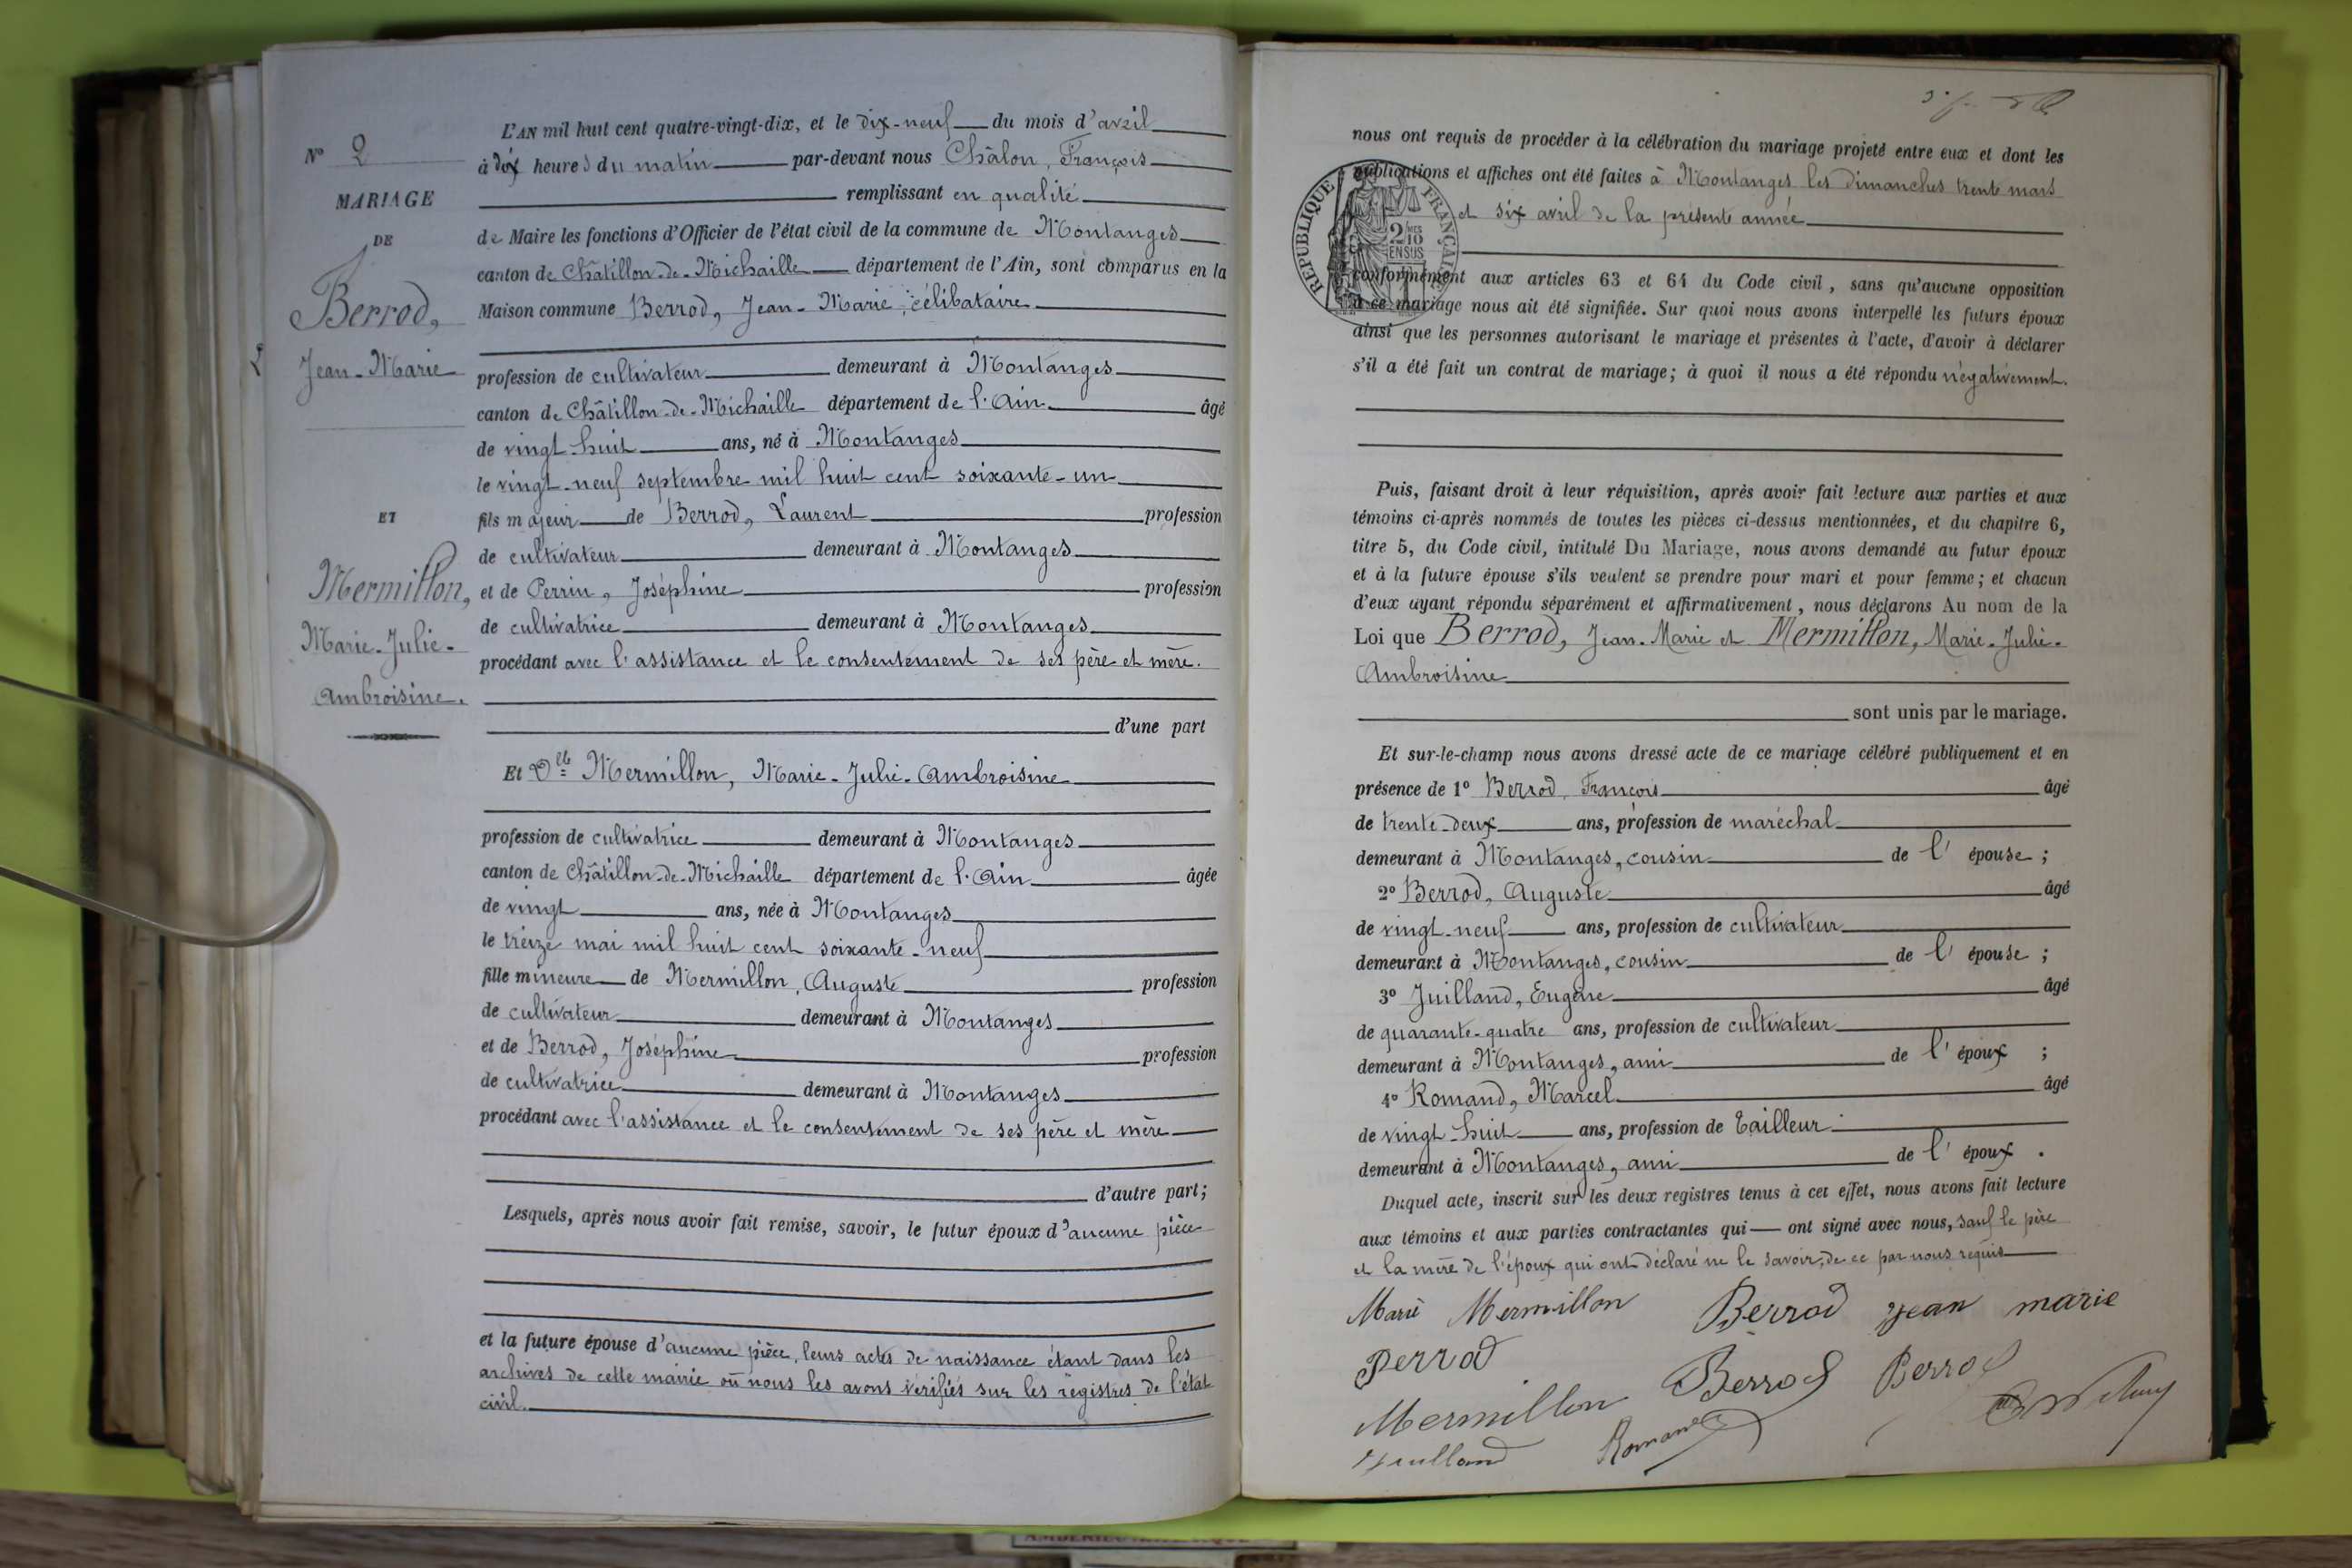 N° 2
MARIAGE
DE
Berrod,
Jean-Marie
ET
Mermillon,
Marie-Julie-
Ambroisine.
L'AN mil huit cent quatre-vingt-dix, et le dix-neuf du mois d'avril
à dix heures du matin par-devant nous Châlon, François
remplissant en qualité
de Maire les fonctions d'Officier de l'état civil de la commune de Montanges
canton de Châtillon-de-Michaille département de l'Ain, sont comparus en la
Maison commune Berrod, Jean-Marie, célibataire
profession de cultivateur demeurant à Montanges
canton de Châtillon-de-Michaille département de l'Ain âgé
de vingt-huit ans, né à Montanges
le vingt-neuf septembre mil huit cent soixante-un
fils majeur de Berrod, Laurent profession
de cultivateur demeurant à Montanges
et de Perrin, Joséphine profession
de cultivatrice demeurant à Montanges
procédant avec l'assistance et le consentement de ses père et mère.
d'une part
Et Dlle Mermillon, Marie-Julie-Ambroisine
profession de cultivatrice demeurant à Montanges
canton de Châtillon-de-Michaille département de l'Ain âgée
de vingt ans, née à Montanges
le treize mai mil huit cent soixante-neuf
fille mineure de Mermillon, Auguste profession
de cultivateur demeurant à Montanges
et de Berrod, Joséphine profession
de cultivatrice demeurant à Montanges
procédant avec l'assistance et le consentement de ses père et mère
d'autre part;
Lesquels, après nous avoir fait remise, savoir, le futur époux d'aucune pièce
et la future épouse d'aucune pièce, leurs actes de naissance étant dans les
archives de cette mairie où nous les avons vérifiés sur les registres de l'état
civil.
nous ont requis de procéder à la célébration du mariage projeté entre eux et dont les
publications et affiches ont été faites à Montanges les dimanches trente mars
et six avril de la présente année
RÉPUBLIQUE FRANÇAISE
2/10
EN SUS
conformément aux articles 63 et 64 du Code civil, sans qu'aucune opposition
à ce mariage nous ait été signifiée. Sur quoi nous avons interpellé les futurs époux
ainsi que les personnes autorisant le mariage et présentes à l'acte, d'avoir à déclarer
s'il a été fait un contrat de mariage; à quoi il nous a été répondu négativement.
Puis, faisant droit à leur réquisition, après avoir fait lecture aux parties et aux
témoins ci-après nommés de toutes les pièces ci-dessus mentionnées, et du chapitre 6,
titre 5, du Code civil, intitulé Du Mariage, nous avons demandé au futur époux
et à la future épouse s'ils veulent se prendre pour mari et pour femme; et chacun
d'eux ayant répondu séparément et affirmativement, nous déclarons Au nom de la
Loi que Berrod, Jean-Marie et Mermillon, Marie-Julie-
Ambroisine
sont unis par le mariage.
Et sur-le-champ nous avons dressé acte de ce mariage célébré publiquement et en
présence de 1° Berrod, François âgé
de trente-deux ans, profession de maréchal
demeurant à Montanges, cousin de l'épouse;
2° Berrod, Auguste âgé
de vingt-neuf ans, profession de cultivateur
demeurant à Montanges, cousin de l'épouse;
3° Juilland, Eugène âgé
de quarante-quatre ans, profession de cultivateur
demeurant à Montanges, ami de l'époux;
4° Romand, Marcel âgé
de vingt-huit ans, profession de tailleur
demeurant à Montanges, ami de l'époux.
Duquel acte, inscrit sur les deux registres tenus à cet effet, nous avons fait lecture
aux témoins et aux parties contractantes qui ont signé avec nous, sauf le père
et la mère de l'époux qui ont déclaré ne le savoir, de ce par nous requis
Marie Mermillon Berrod jean marie
Berrod
Mermillon Berrod Berrod
Juilland Romand